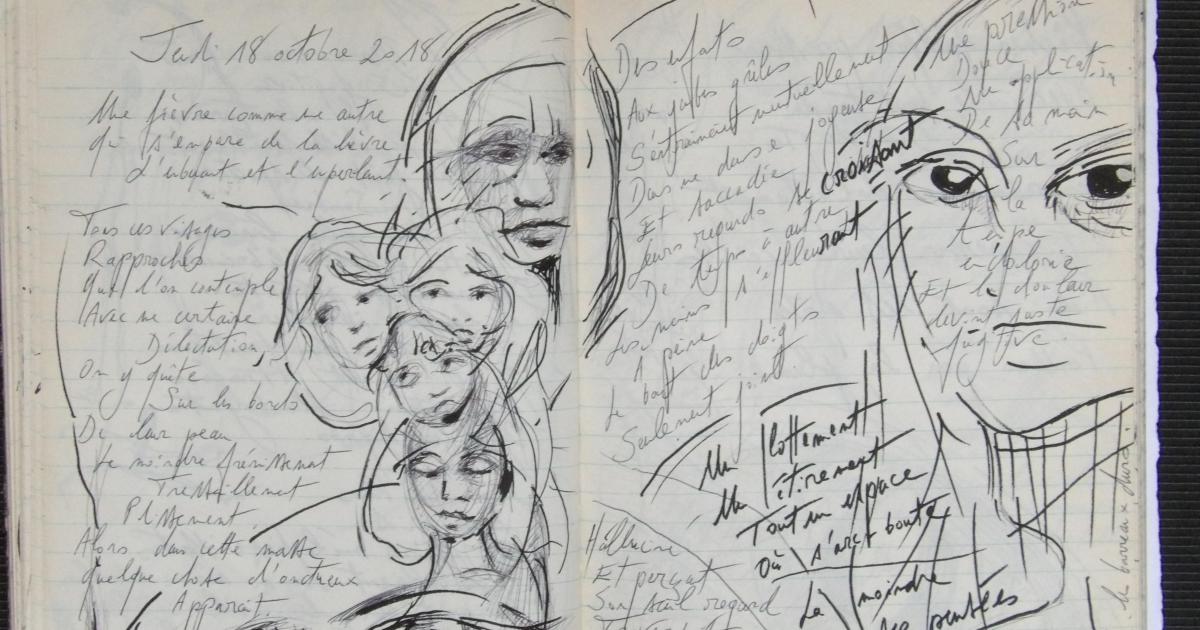 Jeudi 18 octobre 2018
Une fièvre comme une autre
qui s'empare de la lèvre
Tous ces visages
Rapprochés
que l'on contemple
Avec une certaine
Délectation,
On y guette
Sur les bords
De leur peau
Le moindre frémissement
Tressaillement
Plissement,
Alors dans cette masse
quelque chose d'onctueux
Apparait.
Des enfants
Aux jambes grêles
S'entrainant mutuellement
Dans une danse joyeuse
Et saccadée
Leurs regards se croisant
De temps à autre
Les mains s'effleurant
A peine
Le bout des doigts
Seulement joint.
Un flottement
Un étirement
Tout un espace
Où s'arc boute
Le moindre
Hallucine
Et perçut
Son seul regard
Une pression
Douce
Une application
De la main
Sur
la
tempe
endolorie
Et la douleur
devint juste
fugitive.